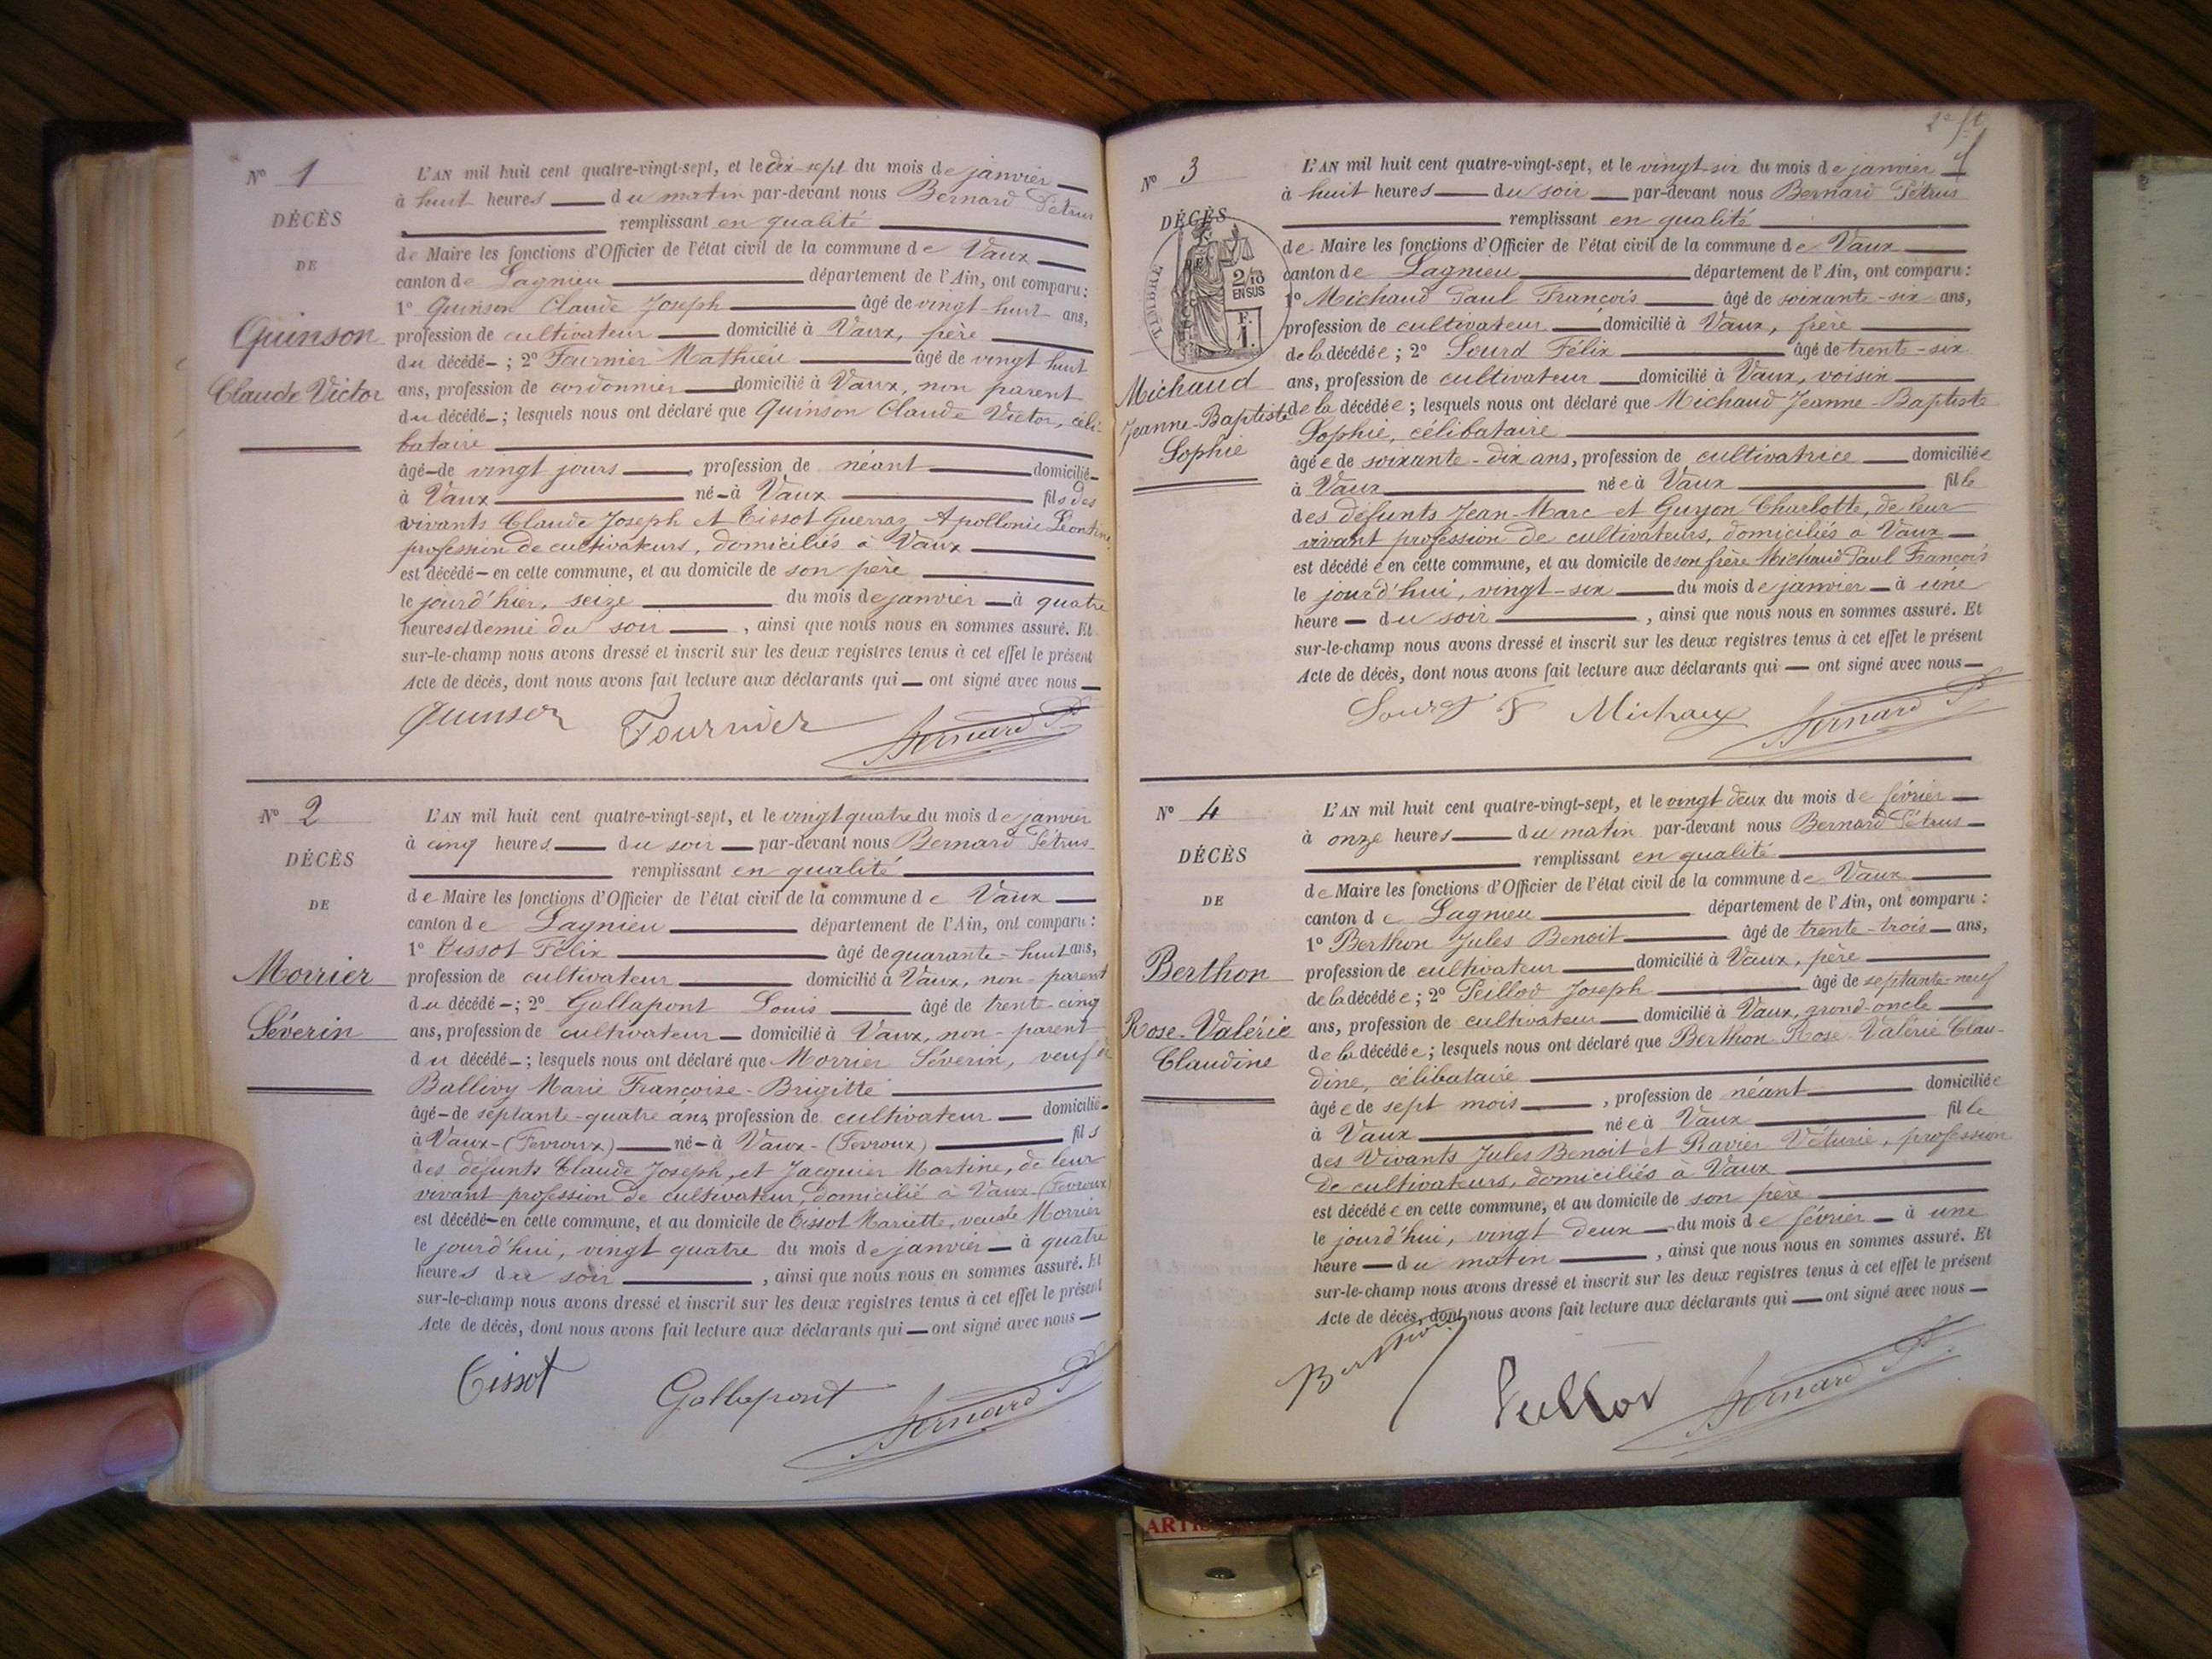 Nº 1
DÉCÈS
DE
Quinson
Claude Victor
L'AN mil huit cent quatre-vingt-sept, et le dix-sept du mois de janvier
à huit heures du matin par-devant nous Bernard Pétrus
remplissant en qualité
de Maire les fonctions d'Officier de l'état civil de la commune de Vaux
canton de Lagnieu département de l'Ain, ont comparu :
1º Quinson Claude Joseph âgé de vingt-huit ans,
profession de cultivateur domicilié à Vaux, père
du décédé ; 2º Fournier Mathieu âgé de vingt huit
ans, profession de cordonnier domicilié à Vaux, non parent
du décédé ; lesquels nous ont déclaré que Quinson Claude Victor, céli-
bataire
âgé de vingt jours, profession de néant domicilié
à Vaux né à Vaux fils des
vivants Claude Joseph et Tissot Guerraz Apollonie Léontine,
profession de cultivateurs, domiciliés à Vaux
est décédé en cette commune, et au domicile de son père
le jourd'hier, seize du mois de janvier à quatre
heures et demie du soir, ainsi que nous nous en sommes assuré. Et
sur-le-champ nous avons dressé et inscrit sur les deux registres tenus à cet effet le présent
Acte de décès, dont nous avons fait lecture aux déclarants qui ont signé avec nous
Quinson Fournier Bernard P.
Nº 2
DÉCÈS
DE
Morrier
Séverin
L'AN mil huit cent quatre-vingt-sept, et le vingt quatre du mois de janvier
à cinq heures du soir par-devant nous Bernard Pétrus
remplissant en qualité
de Maire les fonctions d'Officier de l'état civil de la commune de Vaux
canton de Lagnieu département de l'Ain, ont comparu :
1º Tissot Félix âgé de quarante-huit ans,
profession de cultivateur domicilié à Vaux, non-parent
du décédé ; 2º Gallapont Louis âgé de trente-cinq
ans, profession de cultivateur domicilié à Vaux, non-parent
du décédé ; lesquels nous ont déclaré que Morrier Séverin, veuf de
Ballivy Marie Françoise-Brigitte
âgé de septante-quatre ans, profession de cultivateur domicilié
à Vaux-(Fevroux) né à Vaux-(Fevroux) fils
des défunts Claude Joseph, et Jacquier Martine, de leur
vivant profession de cultivateur, domicilié à Vaux-(Fevroux)
est décédé en cette commune, et au domicile de Tissot Mariette, veuve Morrier
le jourd'hui, vingt quatre du mois de janvier à quatre
heures du soir, ainsi que nous nous en sommes assuré. Et
sur-le-champ nous avons dressé et inscrit sur les deux registres tenus à cet effet le présent
Acte de décès, dont nous avons fait lecture aux déclarants qui ont signé avec nous
Tissot Gallapont Bernard P.
2e ft
Nº 3
DÉCÈS
TIMBRE
2/10
EN SUS
F.
1.
Michaud
Jeanne-Baptiste
Sophie
L'AN mil huit cent quatre-vingt-sept, et le vingt-six du mois de janvier
à huit heures du soir par-devant nous Bernard Pétrus
remplissant en qualité
de Maire les fonctions d'Officier de l'état civil de la commune de Vaux
canton de Lagnieu département de l'Ain, ont comparu :
1º Michaud Paul François âgé de soixante-six ans,
profession de cultivateur domicilié à Vaux, frère
de la décédée ; 2º Lourd Félix âgé de trente-six
ans, profession de cultivateur domicilié à Vaux, voisin
de la décédée ; lesquels nous ont déclaré que Michaud Jeanne-Baptiste
Sophie, célibataire
âgée de soixante-dix ans, profession de cultivatrice domiciliée
à Vaux née à Vaux fille
des défunts Jean-Marc et Guyon Charlotte, de leur
vivant profession de cultivateurs, domiciliés à Vaux
est décédée en cette commune, et au domicile de son frère Michaud Paul François
le jourd'hui, vingt-six du mois de janvier à une
heure du soir, ainsi que nous nous en sommes assuré. Et
sur-le-champ nous avons dressé et inscrit sur les deux registres tenus à cet effet le présent
Acte de décès, dont nous avons fait lecture aux déclarants qui ont signé avec nous
Michaux Bernard P.
Nº 4
DÉCÈS
DE
Berthon
Rose-Valérie
Claudine
L'AN mil huit cent quatre-vingt-sept, et le vingt deux du mois de février
à onze heures du matin par-devant nous Bernard Pétrus
remplissant en qualité
de Maire les fonctions d'Officier de l'état civil de la commune de Vaux
canton de Lagnieu département de l'Ain, ont comparu :
1º Berthon Jules Benoit âgé de trente-trois ans,
profession de cultivateur domicilié à Vaux, père
de la décédée ; 2º Peillod Joseph âgé de septante-neuf
ans, profession de cultivateur domicilié à Vaux, grand-oncle
de la décédée ; lesquels nous ont déclaré que Berthon Rose Valérie Clau-
dine, célibataire
âgée de sept mois, profession de néant domiciliée
à Vaux née à Vaux fille
des Vivants Jules Benoit et Ravier Véturie, profession
de cultivateurs, domiciliés à Vaux
est décédée en cette commune, et au domicile de son père
le jourd'hui, vingt deux du mois de février à une
heure du matin, ainsi que nous nous en sommes assuré. Et
sur-le-champ nous avons dressé et inscrit sur les deux registres tenus à cet effet le présent
Acte de décès, dont nous avons fait lecture aux déclarants qui ont signé avec nous
Berthon Peillod Bernard P.